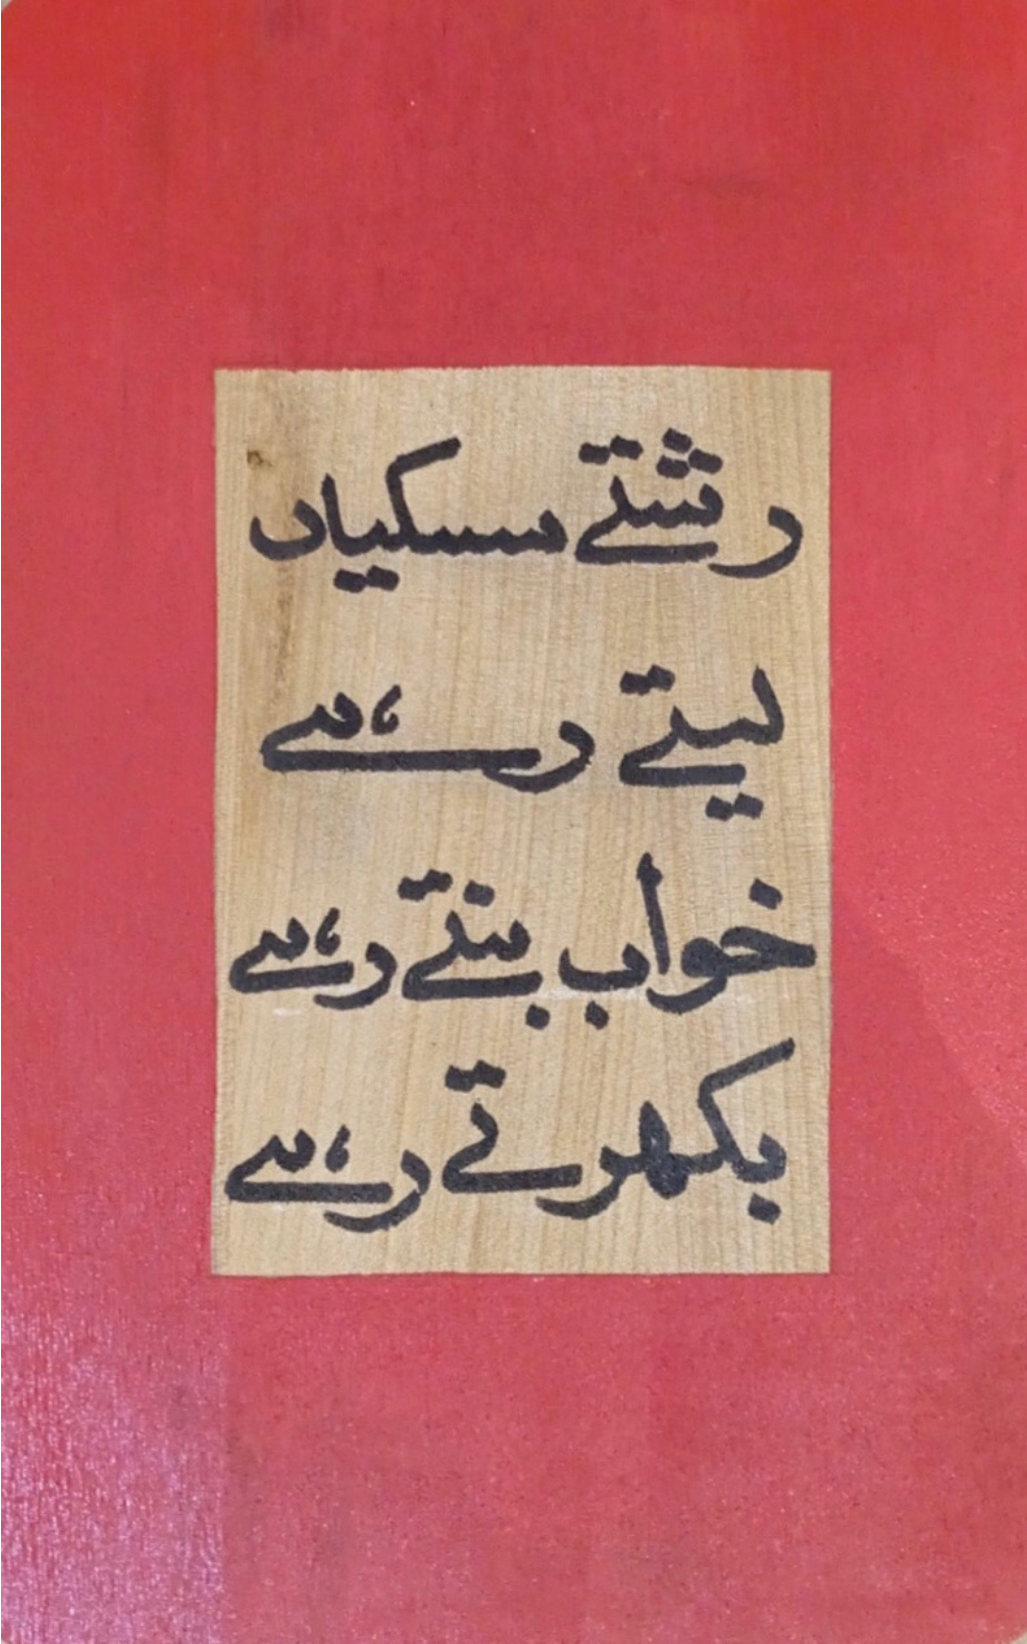 رشتے سسکیاں
لیتے رہے
خواب بنتے رہے
بکھرتے رہے